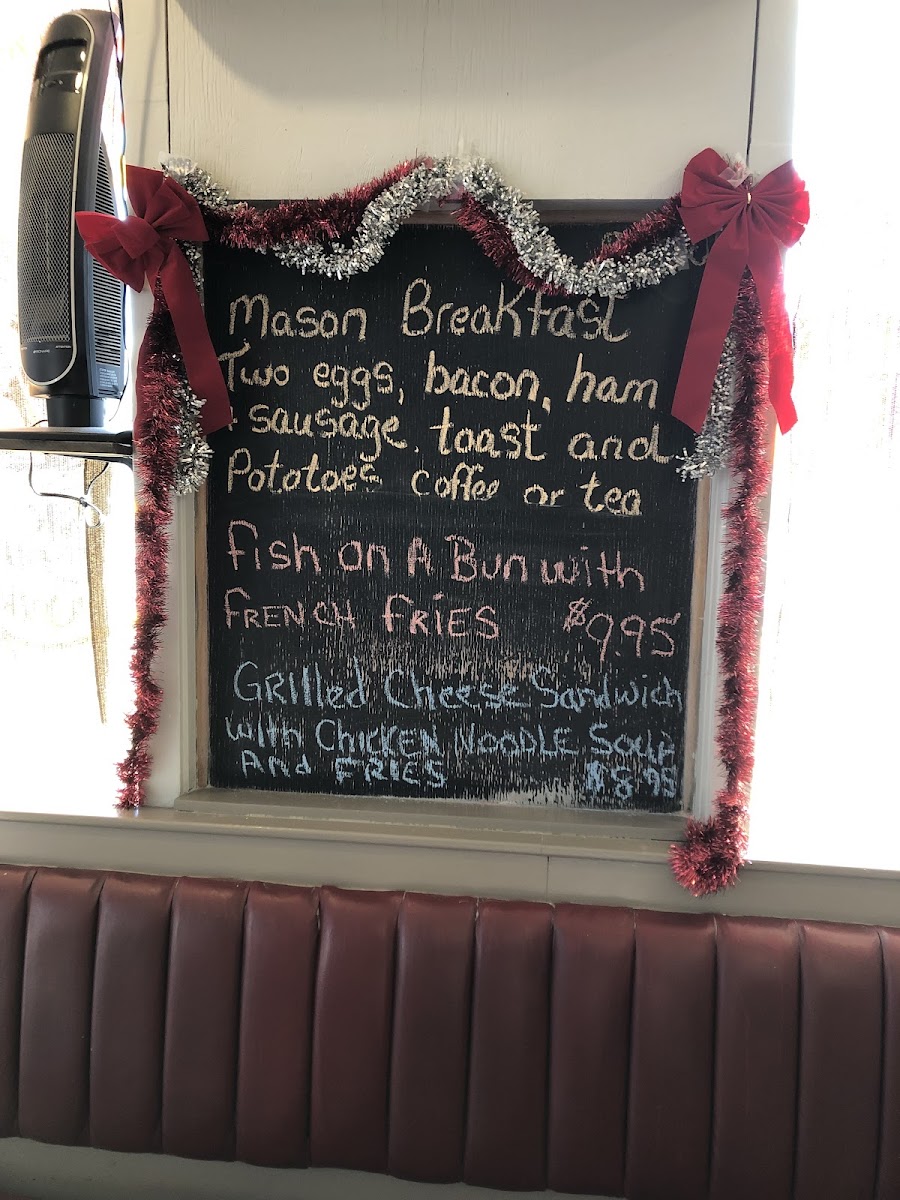 Mason Breakfast
Two eggs, bacon, ham
+ sausage. toast and
Pototoes coffee or tea
fish on A Bun with
FRENCH FRIES $9.95
GRilled Cheese Sandwich
with CHICKEN NOODLE Soup
And FRIES $8.95